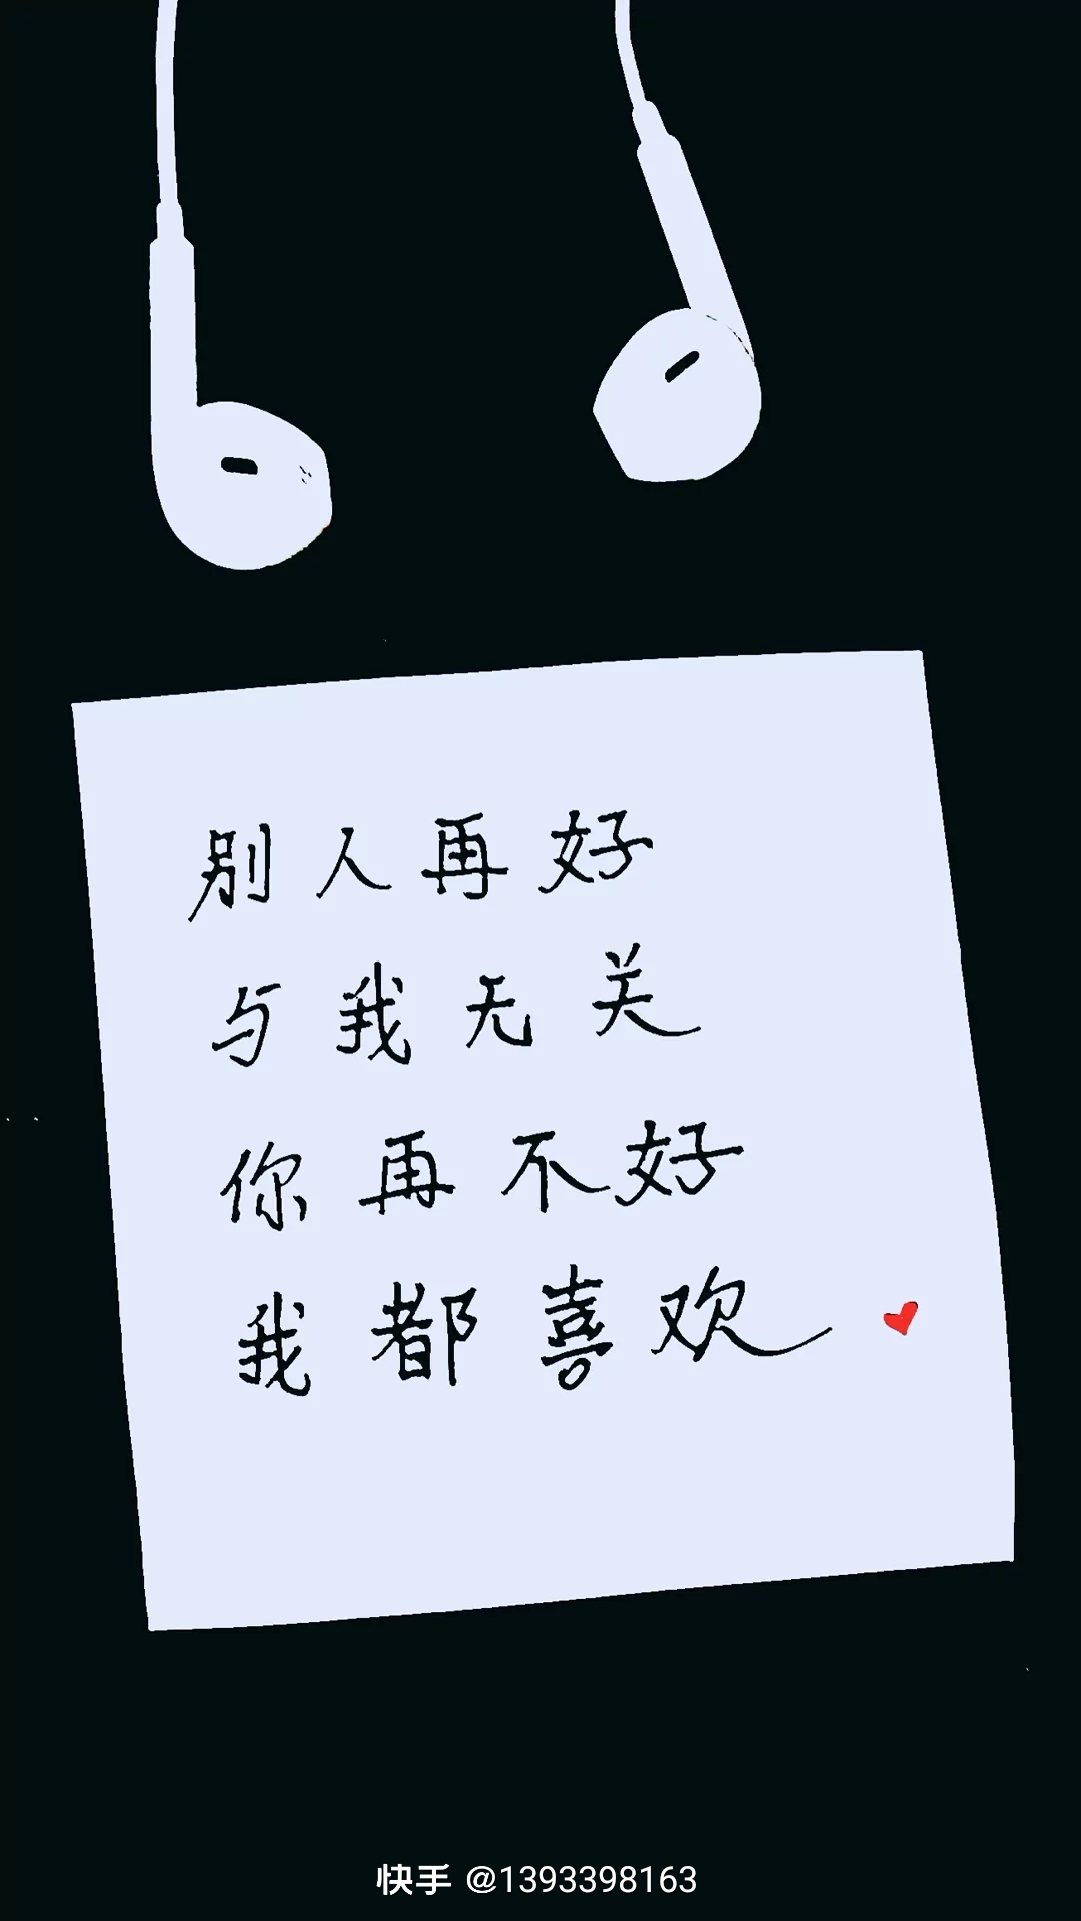 别人再好
与我无关
你再不好
我都喜欢
快手 @1393398163